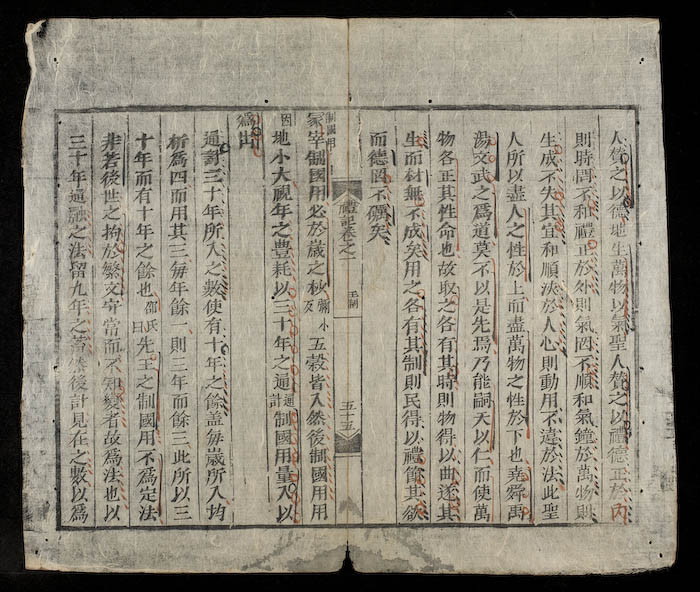 人贊之以德地生萬物以氣聖人贊之以禮德正於內
則時罔不和禮正於外則氣罔不順和氣鐘於萬物則
生成不失其宜和順浹於人心則動用不違於法此聖
人所以盡人之性於上而盡萬物之性於下也堯舜禹
湯文武之為道莫不以是先焉乃能嗣天以仁而使萬
物各正其性命也故取之各有其時則物得以曲遂其
生而材無不成矣用之各有其制則民得以禮節其欲
而德罔不
矣
禮記卷之一
王制
五十五
制國用
冢宰制國用必於歲之杪
小反
五穀皆入然後制國用用
因
地小大視年之豊耗以三十年之通
通計
制國用量入以
為出
通計三十年所入之數使有十年之餘盖每歲所入均
析為四而用其三每年餘一則三年而餘三此所以三
十年而有十年之餘也
氏曰
先王之制國用不為定法
非若後世之拘於繁文守常而不知變者故為法也以
三十年通融之法留九年之蓄然後計見在之數以為